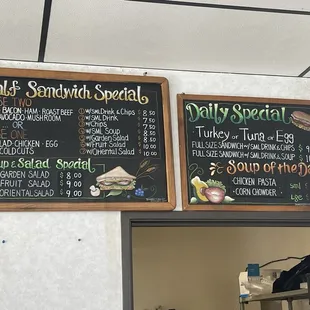 alf Sandwich Special
SE TWO
BACON · HAM · ROAST BEEF
AVOCADO · MUSHROOM
OR
E ONE
LAD · CHICKEN · EGG
COLD CUTS
W/SML DRINK & CHIPS 8.50
W/SML DRINK 7.50
W/CHIPS 7.50
W/SML SOUP 8.50
W/GARDEN SALAD 8.50
W/FRUIT SALAD 10.00
W/ORIENTAL SALAD 10.00
p & Salad Special
GARDEN SALAD $ 8.00
FRUIT SALAD $ 9.00
ORIENTAL SALAD $ 9.00
Daily Special
Turkey or Tuna or Egg
FULL SIZE SANDWICH W/SML DRINK & CHIPS $
FULL SIZE SANDWICH W/SML DRINK & SOUP $
Soup of the D
· CHICKEN PASTA
· CORN CHOWDER
sml
lge